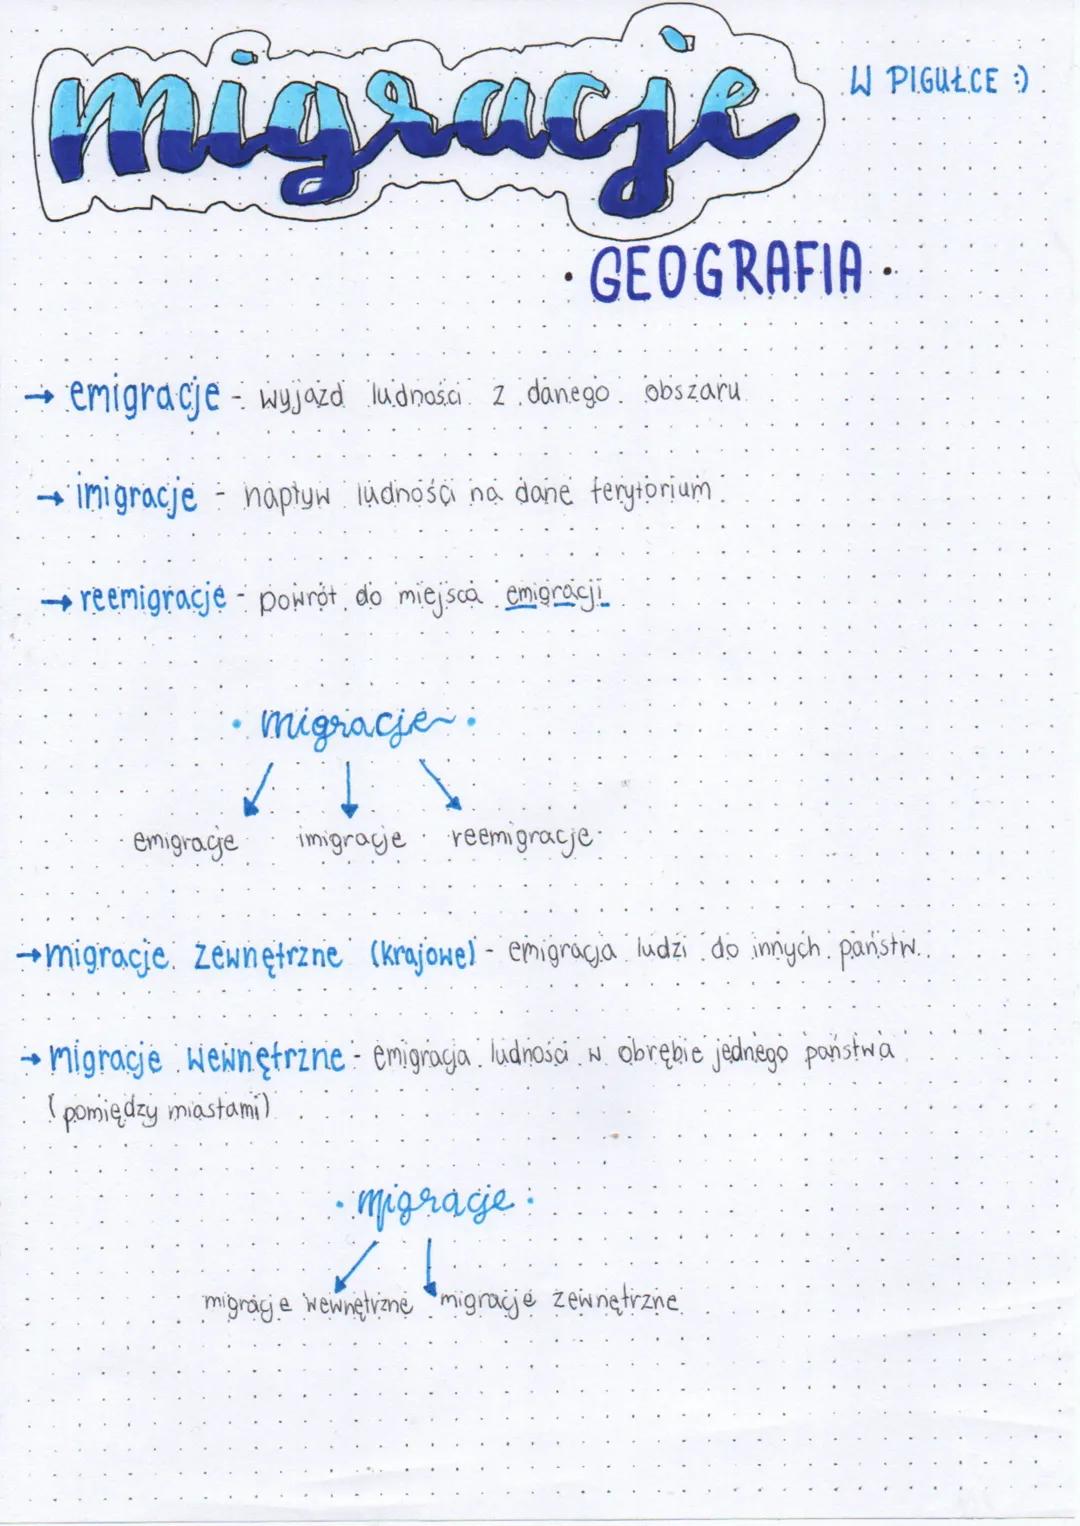 migracje
W PIGUŁCE :)
• GEOGRAFIA •
→ emigracje - wyjazd ludności z danego obszaru
→ imigracje - napływ ludności na dane terytorium
→ reemigracje - powrót do miejsca emigracji
• migracje •
emigracje imigracje reemigracje
→ migracje zewnętrzne (krajowe) - emigracja ludzi do innych państw.
→ migracje wewnętrzne - emigracja ludności w obrębie jednego państwa
(pomiędzy miastami)
• migracje •
migracje wewnętrzne migracje zewnętrzne